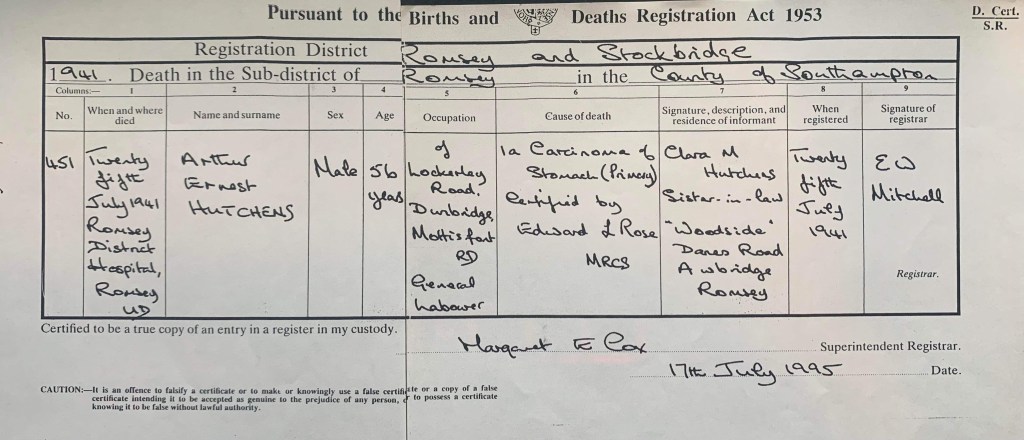 Pursuant to the Births and Deaths Registration Act 1953
D. Cert.
S.R.
Registration District Romsey and Stockbridge
1941. Death in the Sub-district of Romsey in the County of Southampton
Columns:— 1 2 3 4 5 6 7 8 9
No. When and where died Name and surname Sex Age Occupation Cause of death Signature, description, and residence of informant When registered Signature of registrar
451 Twenty Arthur Male 56 of 1a Carcinoma of Clara M Twenty EW
fifth Ernest years Lockerley Stomach (Primary) Hutchens fifth Mitchell
July 1941 HUTCHENS Road. Certified by Sister-in-law July
Romsey Dunbridge Edward L Rose "Woodside" 1941
District Mottisfont MRCS Danes Road
Hospital, RD Awbridge Registrar.
Romsey General Romsey
UD Labourer
Certified to be a true copy of an entry in a register in my custody.
Margaret E Cox Superintendent Registrar.
17th July 1995 Date.
CAUTION:—It is an offence to falsify a certificate or to make or knowingly use a false certificate or a copy of a false
certificate intending it to be accepted as genuine to the prejudice of any person, or to possess a certificate
knowing it to be false without lawful authority.